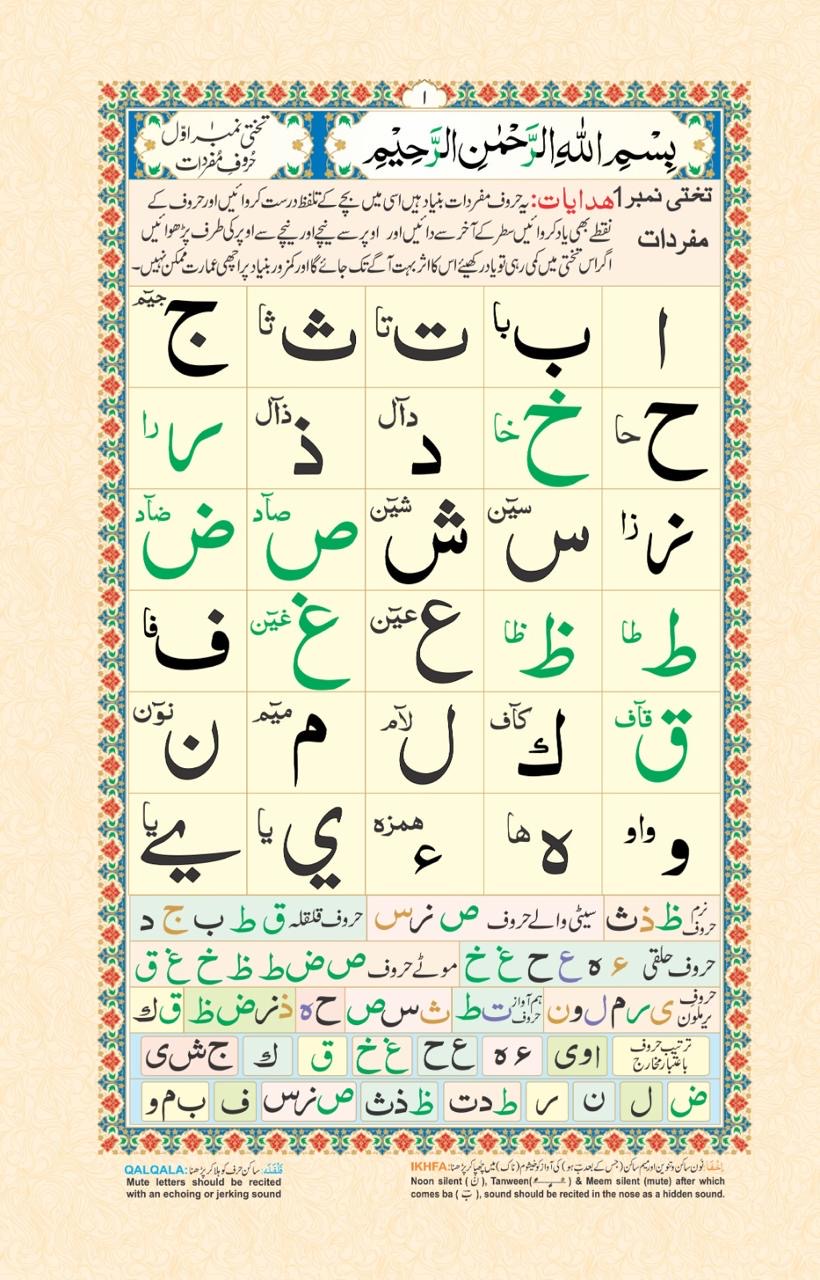 ١
بِسْمِ اللهِ الرَّحْمٰنِ الرَّحِيْمِ
تختی نمبر اوّل
حُروفِ مُفردَات
تختی نمبر1 ھدایات: یہ حروف مفردات بنیاد ہیں اسی میں بچے کے تلفظ درست کروائیں اور حروف کے
مفردات نقطے بھی یاد کروائیں سطر کے آخر سے دائیں اور اوپر سے نیچے اور نیچے سے اوپر کی طرف پڑھوائیں
اگر اس تختی میں کمی رہی تو یاد رکھیئے اس کا اثر بہت آگے تک جائے گا اور کمزور بنیاد پر اچھی عمارت ممکن نہیں۔
ا ب با ت تا ث ثا ج جیٓم
ح حا خ خا د دآل ذ ذآل ر را
ز زا س سیٓن ش شیٓن ص صآد ض ضآد
ط طا ظ ظا ع عیٓن غ غیٓن ف فا
ق قآف ك کآف ل لآم م میٓم ن نوٓن
و واو ه ھا ء ھمزہ ي یا ے یا
نرم حروف ظ ذ ث سیٹی والے حروف ص ز س حروف قلقلہ ق ط ب ج د
حروف حلقی ء ه ع ح غ خ موٹے حروف ص ض ط ظ خ غ ق
حروف یرملون ی ر م ل و ن ہم آواز حروف ت ط ث س ص ح ه ذ ز ض ظ ق ك
ترتیب حروف باعتبار مخارج ا و ی ء ه ع ح غ خ ق ك ج ش ی
ض ل ن ر ط د ت ظ ذ ث ص ز س ف ب م و
QALQALA: قَلْقَلَہ: ساکن حرف کو ہلا کر پڑھنا
Mute letters should be recited
with an echoing or jerking sound
IKHFA: اِخْفَا: نون ساکن و تنوین اور میم ساکن (جس کے بعد ب ہو) کی آواز کو خیشوم (ناک) میں چھپا کر پڑھنا
Noon silent (نْ), Tanween(ـًـٍـٌ) & Meem silent (mute) after which
comes ba (بَ), sound should be recited in the nose as a hidden sound.